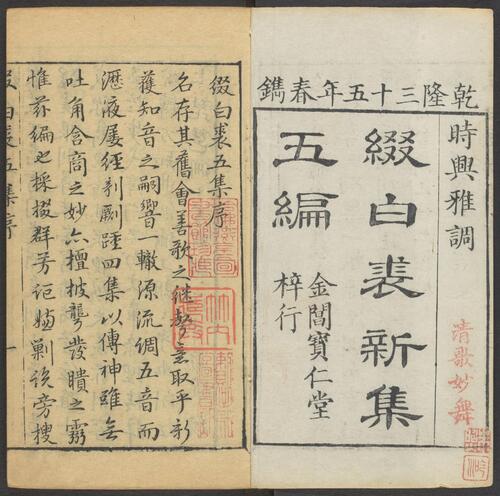 乾隆三十五年春鐫
時興雅調
綴白裘新集
五編
金閶寶仁堂
梓行
清歌妙舞
綴白裘五集序
名存其舊會善歌之继聲意取乎新
獲知音之嗣響一轍源流綢五音而
瀝液屢經剞劂踵四集以傳神雖無
吐角含商之妙亦擅披聾發瞶之
惟茲編也採掇群芳詎剿說旁搜
綴白裘五集序 一